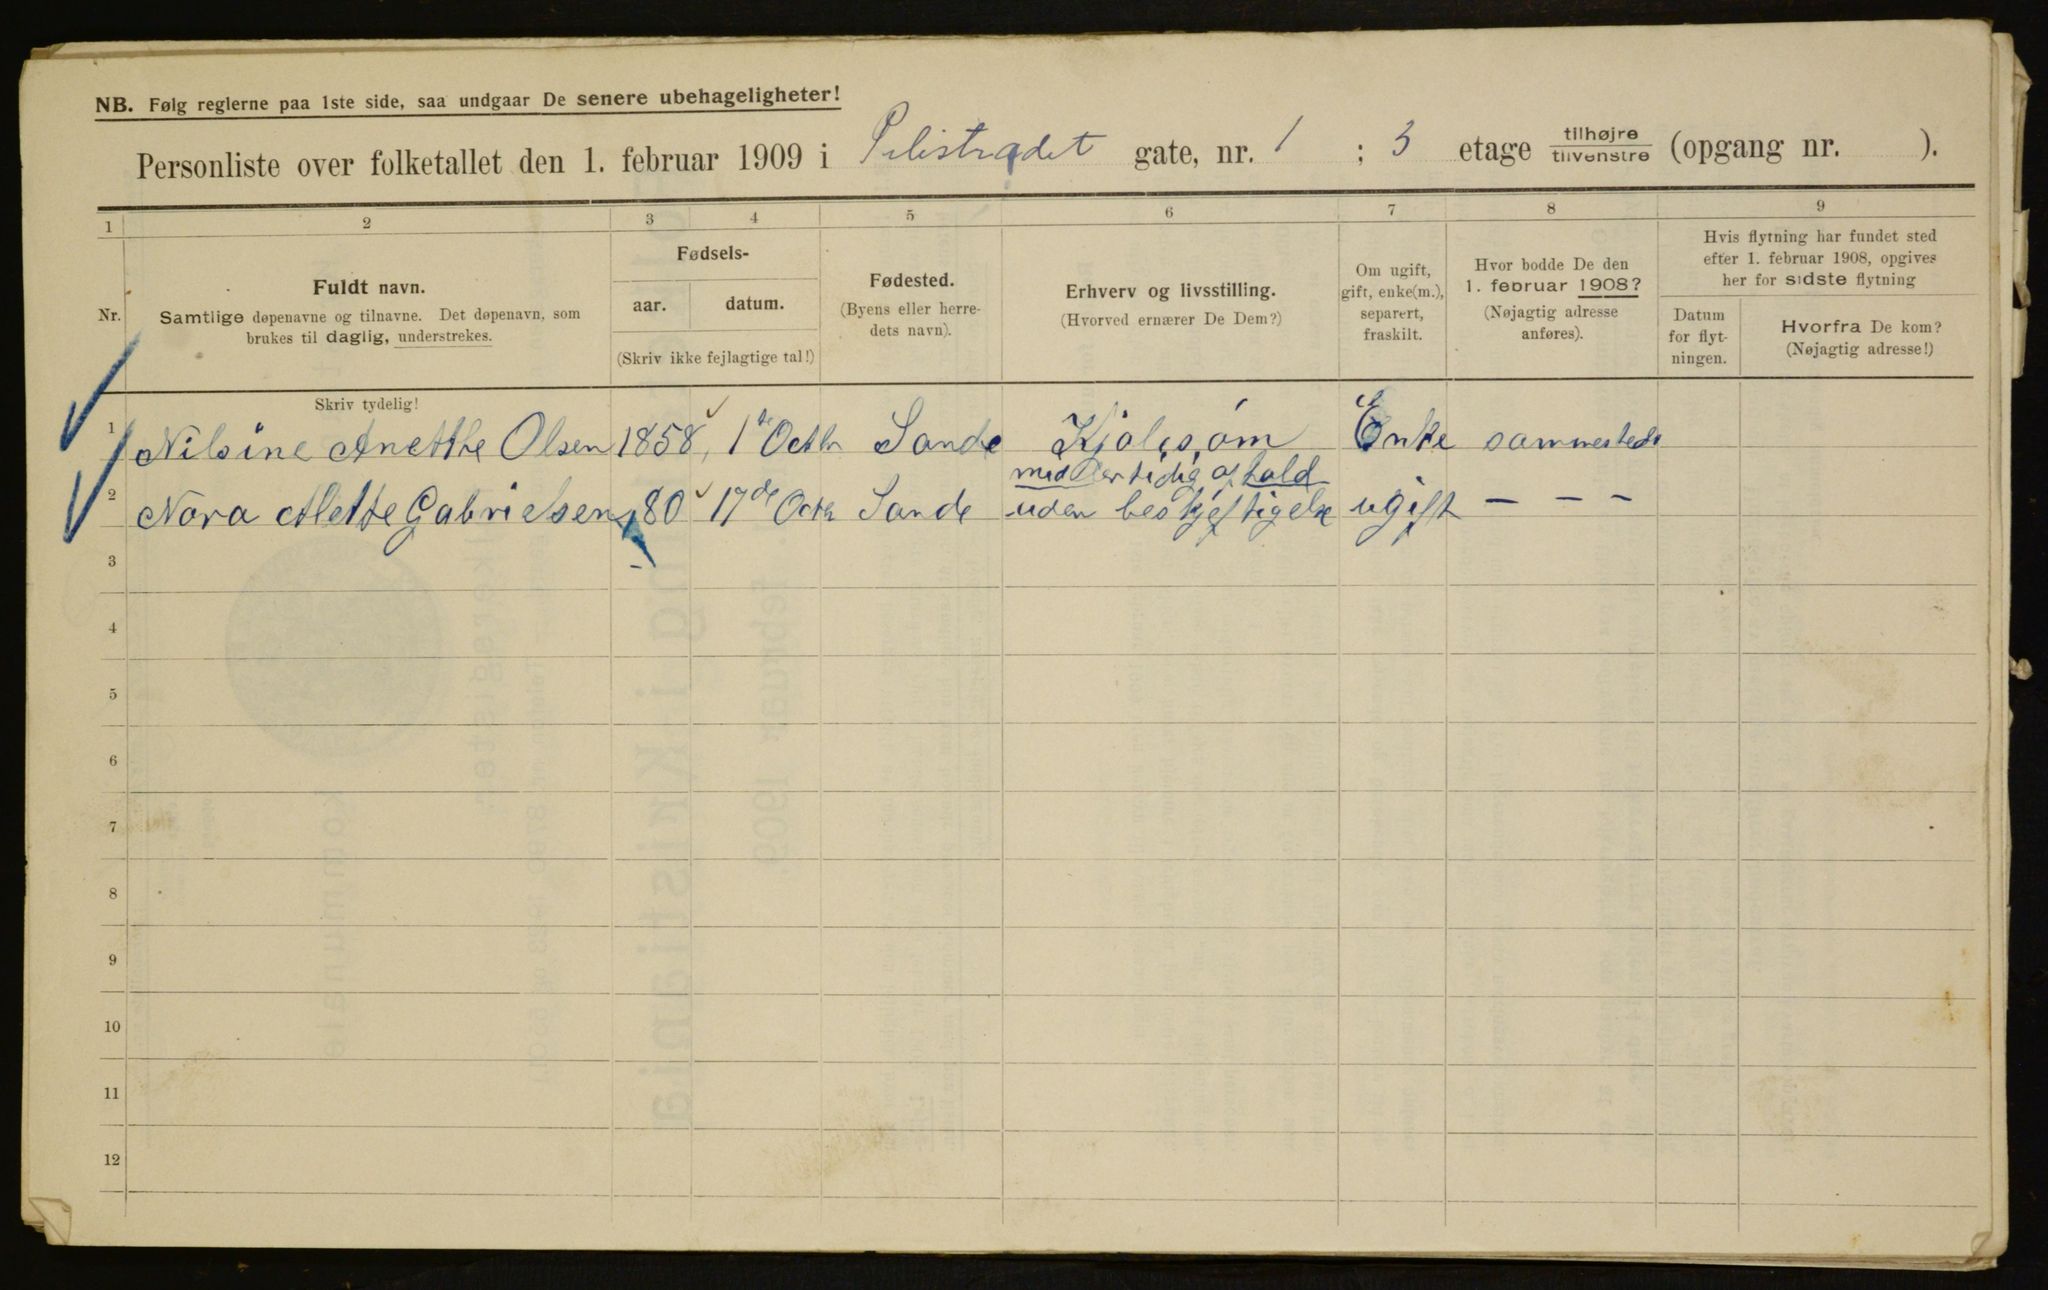 NB. Følg reglerne paa 1ste side, saa undgaar De senere ubehageligheter!
Personliste over folketallet den 1. februar 1909 i Pilestrædet gate, nr. 1 ; 3 etage tilhøjre/tilvenstre (opgang nr. ).
1 2 3 4 5 6 7 8 9
Nr.
Fuldt navn.
Samtlige døpenavne og tilnavne. Det døpenavn, som
brukes til daglig, understrekes.
Fødsels-
aar. datum.
(Skriv ikke fejlagtige tal!)
Fødested.
(Byens eller herre-
dets navn).
Erhverv og livsstilling.
(Hvorved ernærer De Dem?)
Om ugift,
gift, enke(m.),
separert,
fraskilt.
Hvor bodde De den
1. februar 1908?
(Nøjagtig adresse
anføres).
Hvis flytning har fundet sted
efter 1. februar 1908, opgives
her for sidste flytning
Datum
for flyt-
ningen.
Hvorfra De kom?
(Nøjagtig adresse!)
Skriv tydelig!
1 Nilsine Anetthe Olsen 1858, 1 Octbr Sande Kjolesøm Enke sammesteds
med
2 Nora Alette Gabrielsen 80 17de Octb Sande uden beskjeftigelse ugift - - -
3
4
5
6
7
8
9
10
11
12